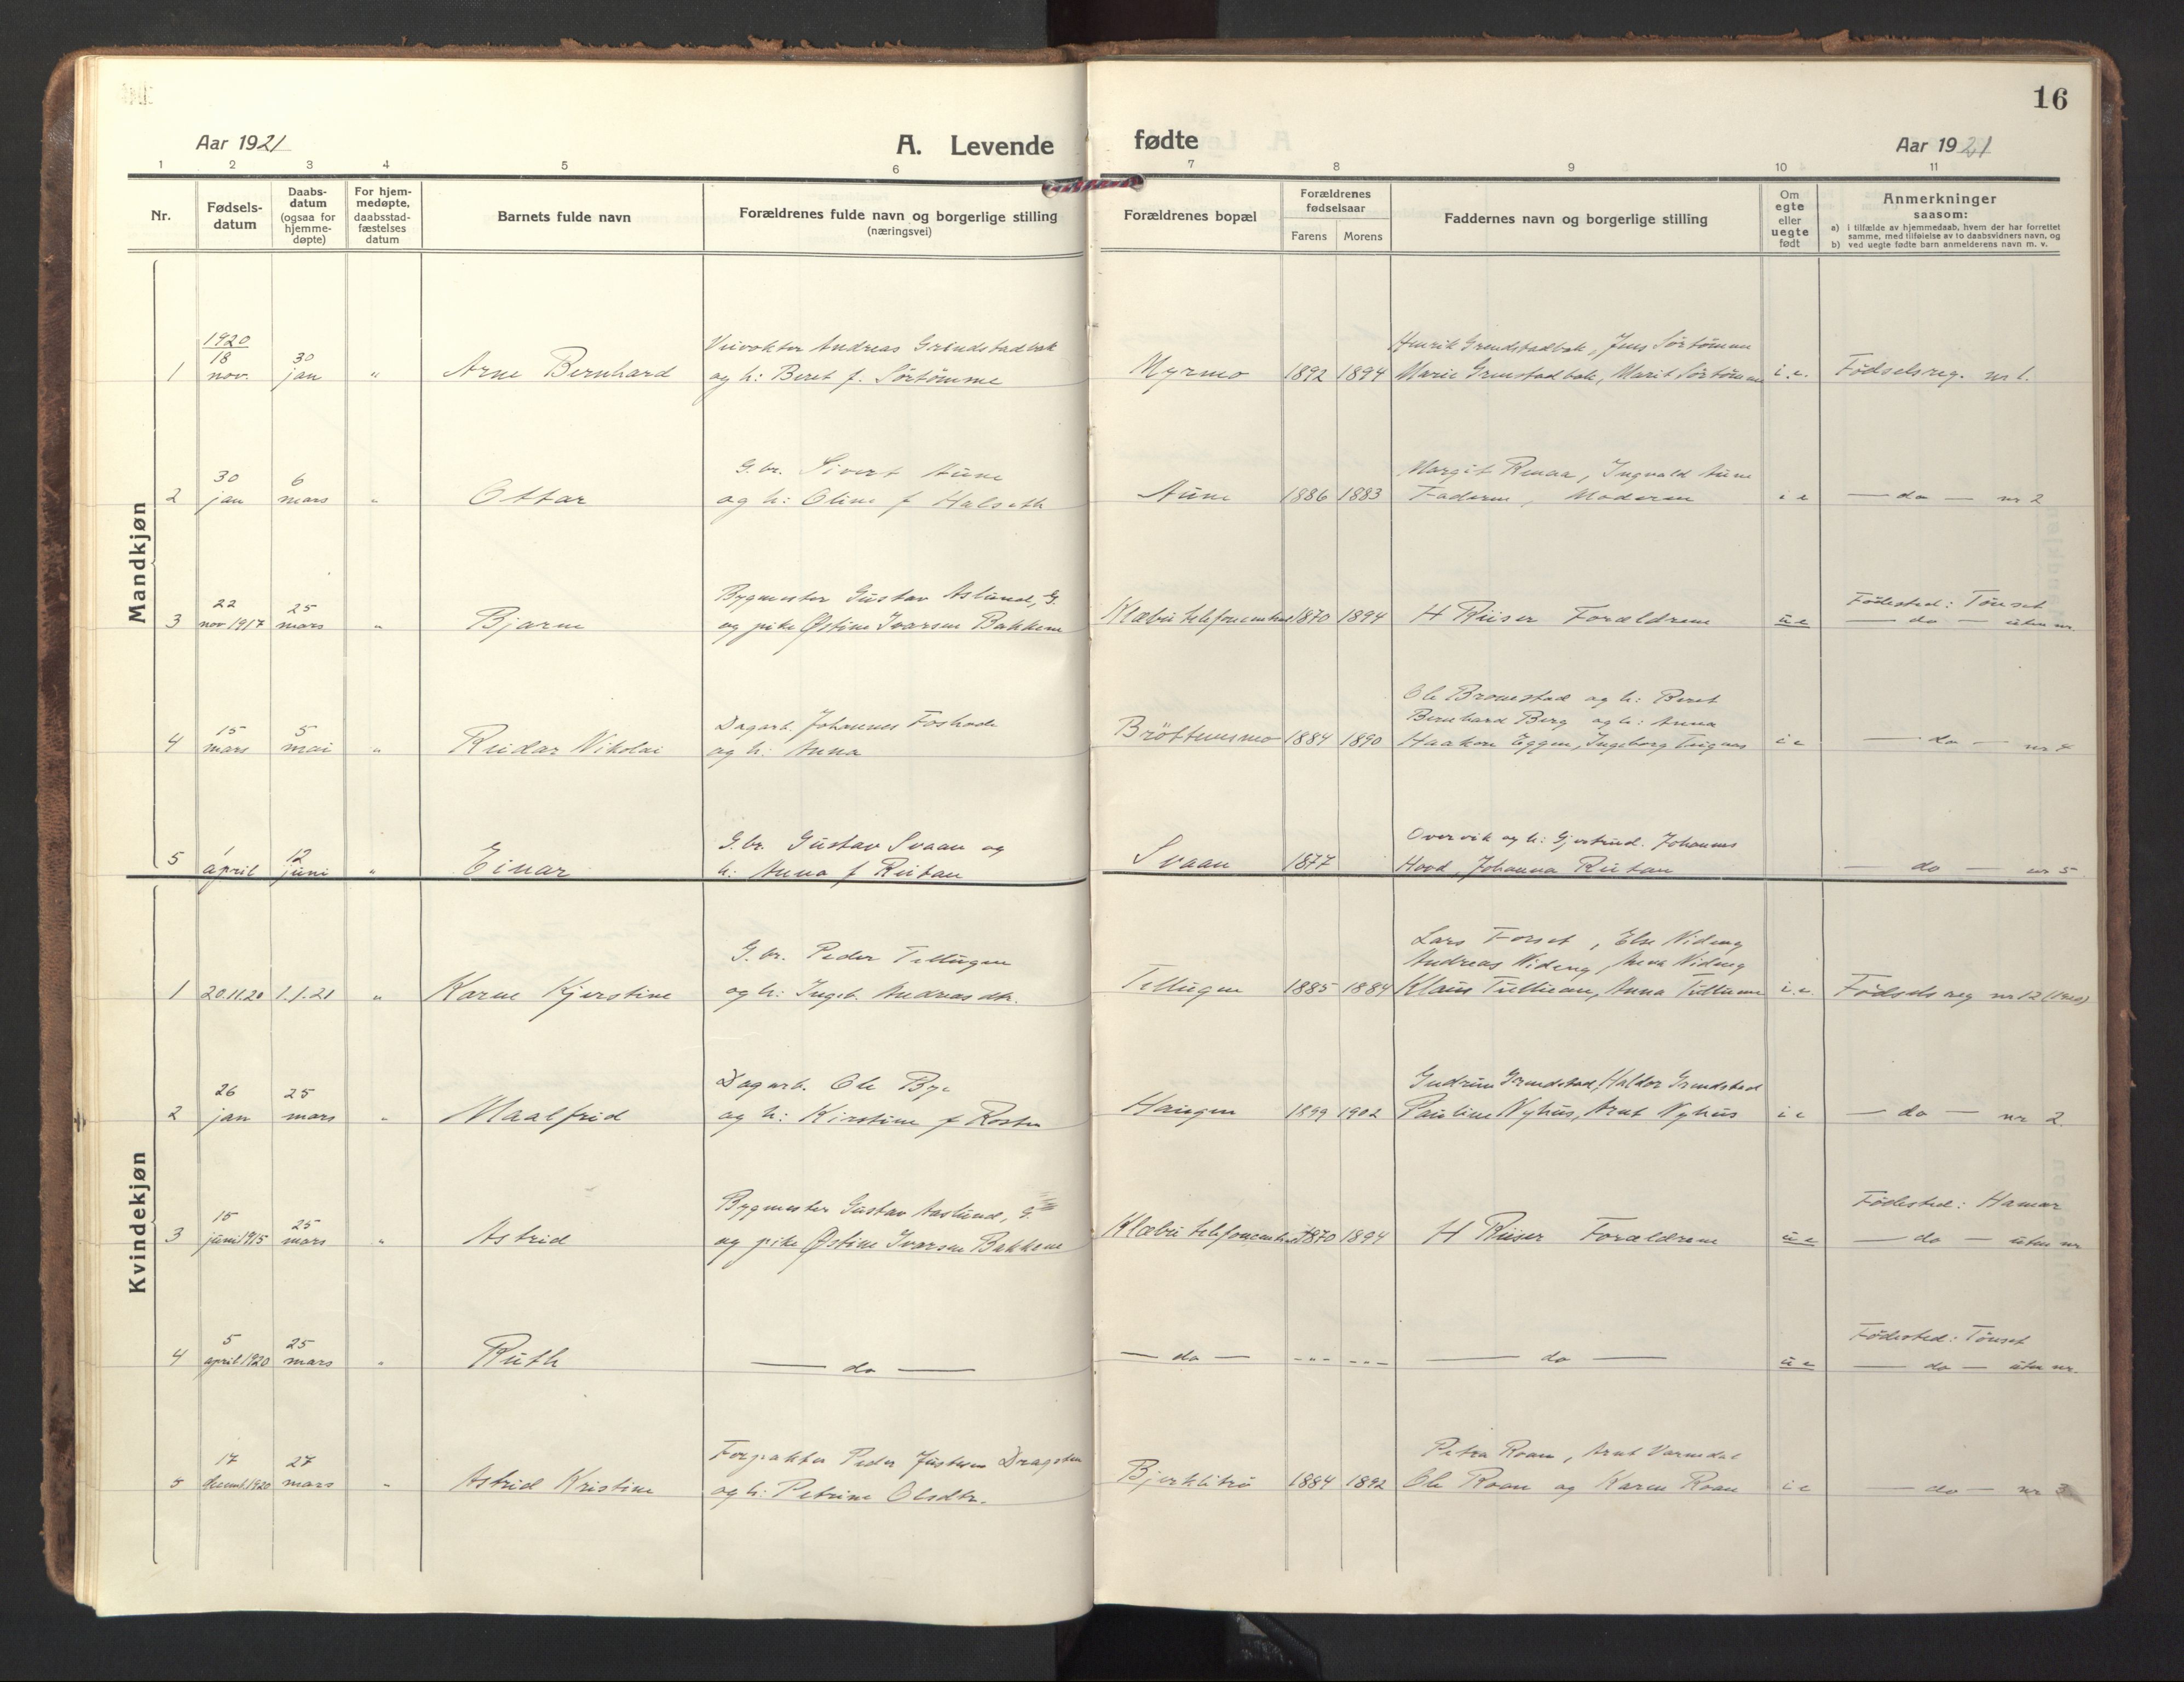 16
Aar 1921
A. Levende
fødte
Aar 1921
1 2 3 4 5 6 7 8 9 10 11
Nr.
Fødsels-
datum
Daabs-
datum
(ogsaa for
hjemme-
døpte)
For hjem-
medøpte,
daabsstad-
fæstelses
datum
Barnets fulde navn
Forældrenes fulde navn og borgerlige stilling
(næringsvei)
Forældrenes bopæl
Forældrenes
fødselsaar
Farens Morens
Faddernes navn og borgerlige stilling
Om
egte
eller
uegte
født
Anmerkninger
saasom:
a) i tilfælde av hjemmedaab, hvem der har forrettet
samme, med tilføielse av to daabsvidners navn, og
b) ved uegte fødte barn anmelderens navn m. v.
Mandkjøn
1920
18 30 Veivokter Andreas Grendstadbak Henrik Grendstadbak, Jens Sörtömme
1 nov. jan " Arne Bernhard og h: Beret f. Sörtömme Myrmo 1892 1894 Marie Grenstadbak, Marit Sörtömme i.e. Födselsreg. nr 1.
30 6 G.br. Sivert Aune Margit Renaa, Ingvald Aune
2 jan mars " Ottar og h: Oline f Halseth Aune 1886 1883 Faderen, Moderen i e — do — nr 2
22 25 Bygmester Gustav Aslund, G. Födested: Tönset
3 nov 1917 mars " Bjarne og pike Østine Ivarsen Bakkene Klæbu 1870 1894 H Riiser Forældrene u e — do — uten nr.
15 5 Dagarb. Johannes Foshode Ole Bronestad og h: Beret
Bernhard Berg og h: Anna
4 mars mai " Reidar Nikolai og h: Anna Bröttemsmo 1884 1890 Haakon Eggen, Ingeborg Teignes i e — do — nr 4
1 12 G.br. Gustav Svaan og Overvik og h: Gjertrud. Johannes
5 april juni " Einar h: Anna f Ruitan Svaan 1877 Hood, Johanna Ruitan — do — nr 5
Kvindekjøn
G.br. Peder Tellugen Lars Forset, Else Nideng
Andreas Nideng, Nideng
1 20.11.20 1.1.21 " Karen Kjerstine og h: Ingeb. Andreasdtr. Tellugen 1885 1884 Klaus Tulluan, Anna Tulluan i.e. Födselsreg nr 12 (1920)
26 25 Dagarb. Ole Bye Gudrun Grendstad, Haldor Grendstad
2 jan mars " Maalfrid og h: Kirstine f Rosten Haugen 1899 1902 Pauline Nyhus, Arnt Nyhus i e — do — nr 2
15 25 Bygmester Gustav Aaslund, G. Födested: Hamar
3 juni 1915 mars " Astrid og pike Østine Ivarsen Bakkene Klæbu 1870 1894 H Riiser Forældrene u e — do — uten nr
5 25 Födested: Tönset
4 april 1920 mars " Ruth — do — — do — -"- -"- — do — u e — do — uten nr.
17 27 Forpakter Peder Justesen Dragsten Petra Roan, Arnt Varmdal
5 decemb. 1920 mars " Astrid Kristine og h: Petrine Olsdtr. Bjerklitrö 1884 1892 Ole Roan og Karen Roan i e — do — nr 3